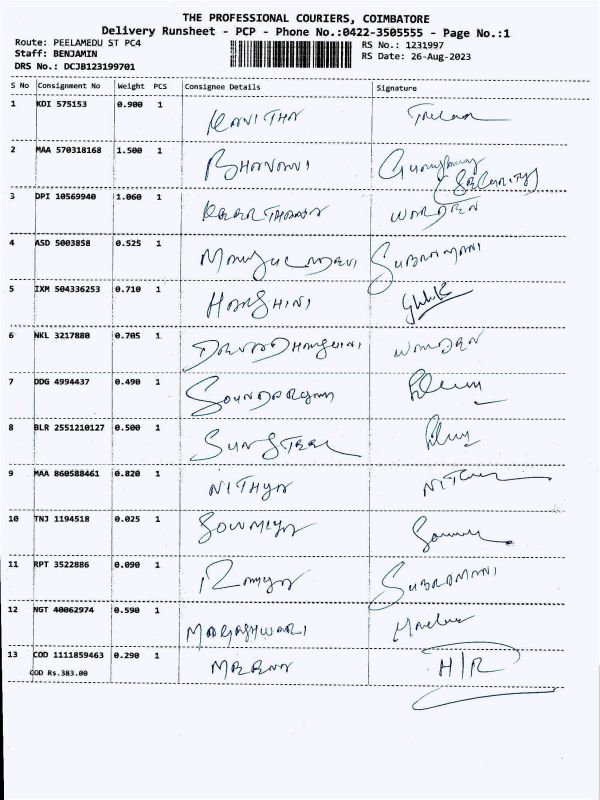 THE PROFESSIONAL COURIERS, COIMBATORE
Delivery Runsheet - PCP - Phone No.:0422-3505555 - Page No.:1
Route: PEELAMEDU ST PC4
Staff: BENJAMIN
DRS No.: DCJB123199701
RS No.: 1231997
RS Date: 26-Aug-2023
S No Consignment No Weight PCS Consignee Details Signature
1 KDI 575153 0.900 1 KAVITHA
2 MAA 570318168 1.500 1 BHAVANI (SECURITY)
3 DPI 10569940 1.060 1 WARDEN
4 ASD 5003858 0.525 1 SUBRAMANI
5 IXM 504336253 0.710 1 HARSHINI
6 NKL 3217880 0.705 1 WARDEN
7 DDG 4994437 0.490 1 SOUNDARYAA
8 BLR 2551210127 0.500 1
9 MAA 860588461 0.820 1 NITHYA
10 TNJ 1194518 0.025 1 SOWMIYA
11 RPT 3522886 0.090 1 RAMYA SUBRAMANI
12 NGT 40062974 0.590 1
13 COD 1111859463 0.290 1 MEENA H/R
COD Rs.383.00